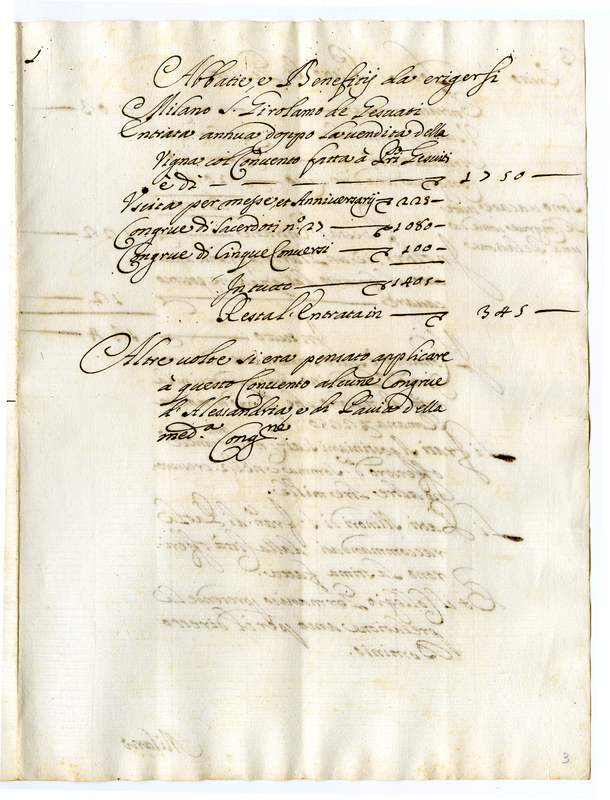 Abbatie e Benefitij da erigersi
Milano S. Girolamo de Gesuati
Entrata annua doppo la vendita della
Vigna col Convento fatta à Pri Gesuiti
è di — 1750 —
Uscita per messe et Anniversarij 225 —
Congrue di Sacerdoti n.o 27 — 1080 —
Congrue di Cinque Conversi — 100 —
In tutto — 1405 —
Resta l'Entrata in — 345 —
Altre volte si era pensato applicare
à questo Convento alcune Congrue
d'Alessandria e di Pavia della
med.a Cong.ne
3